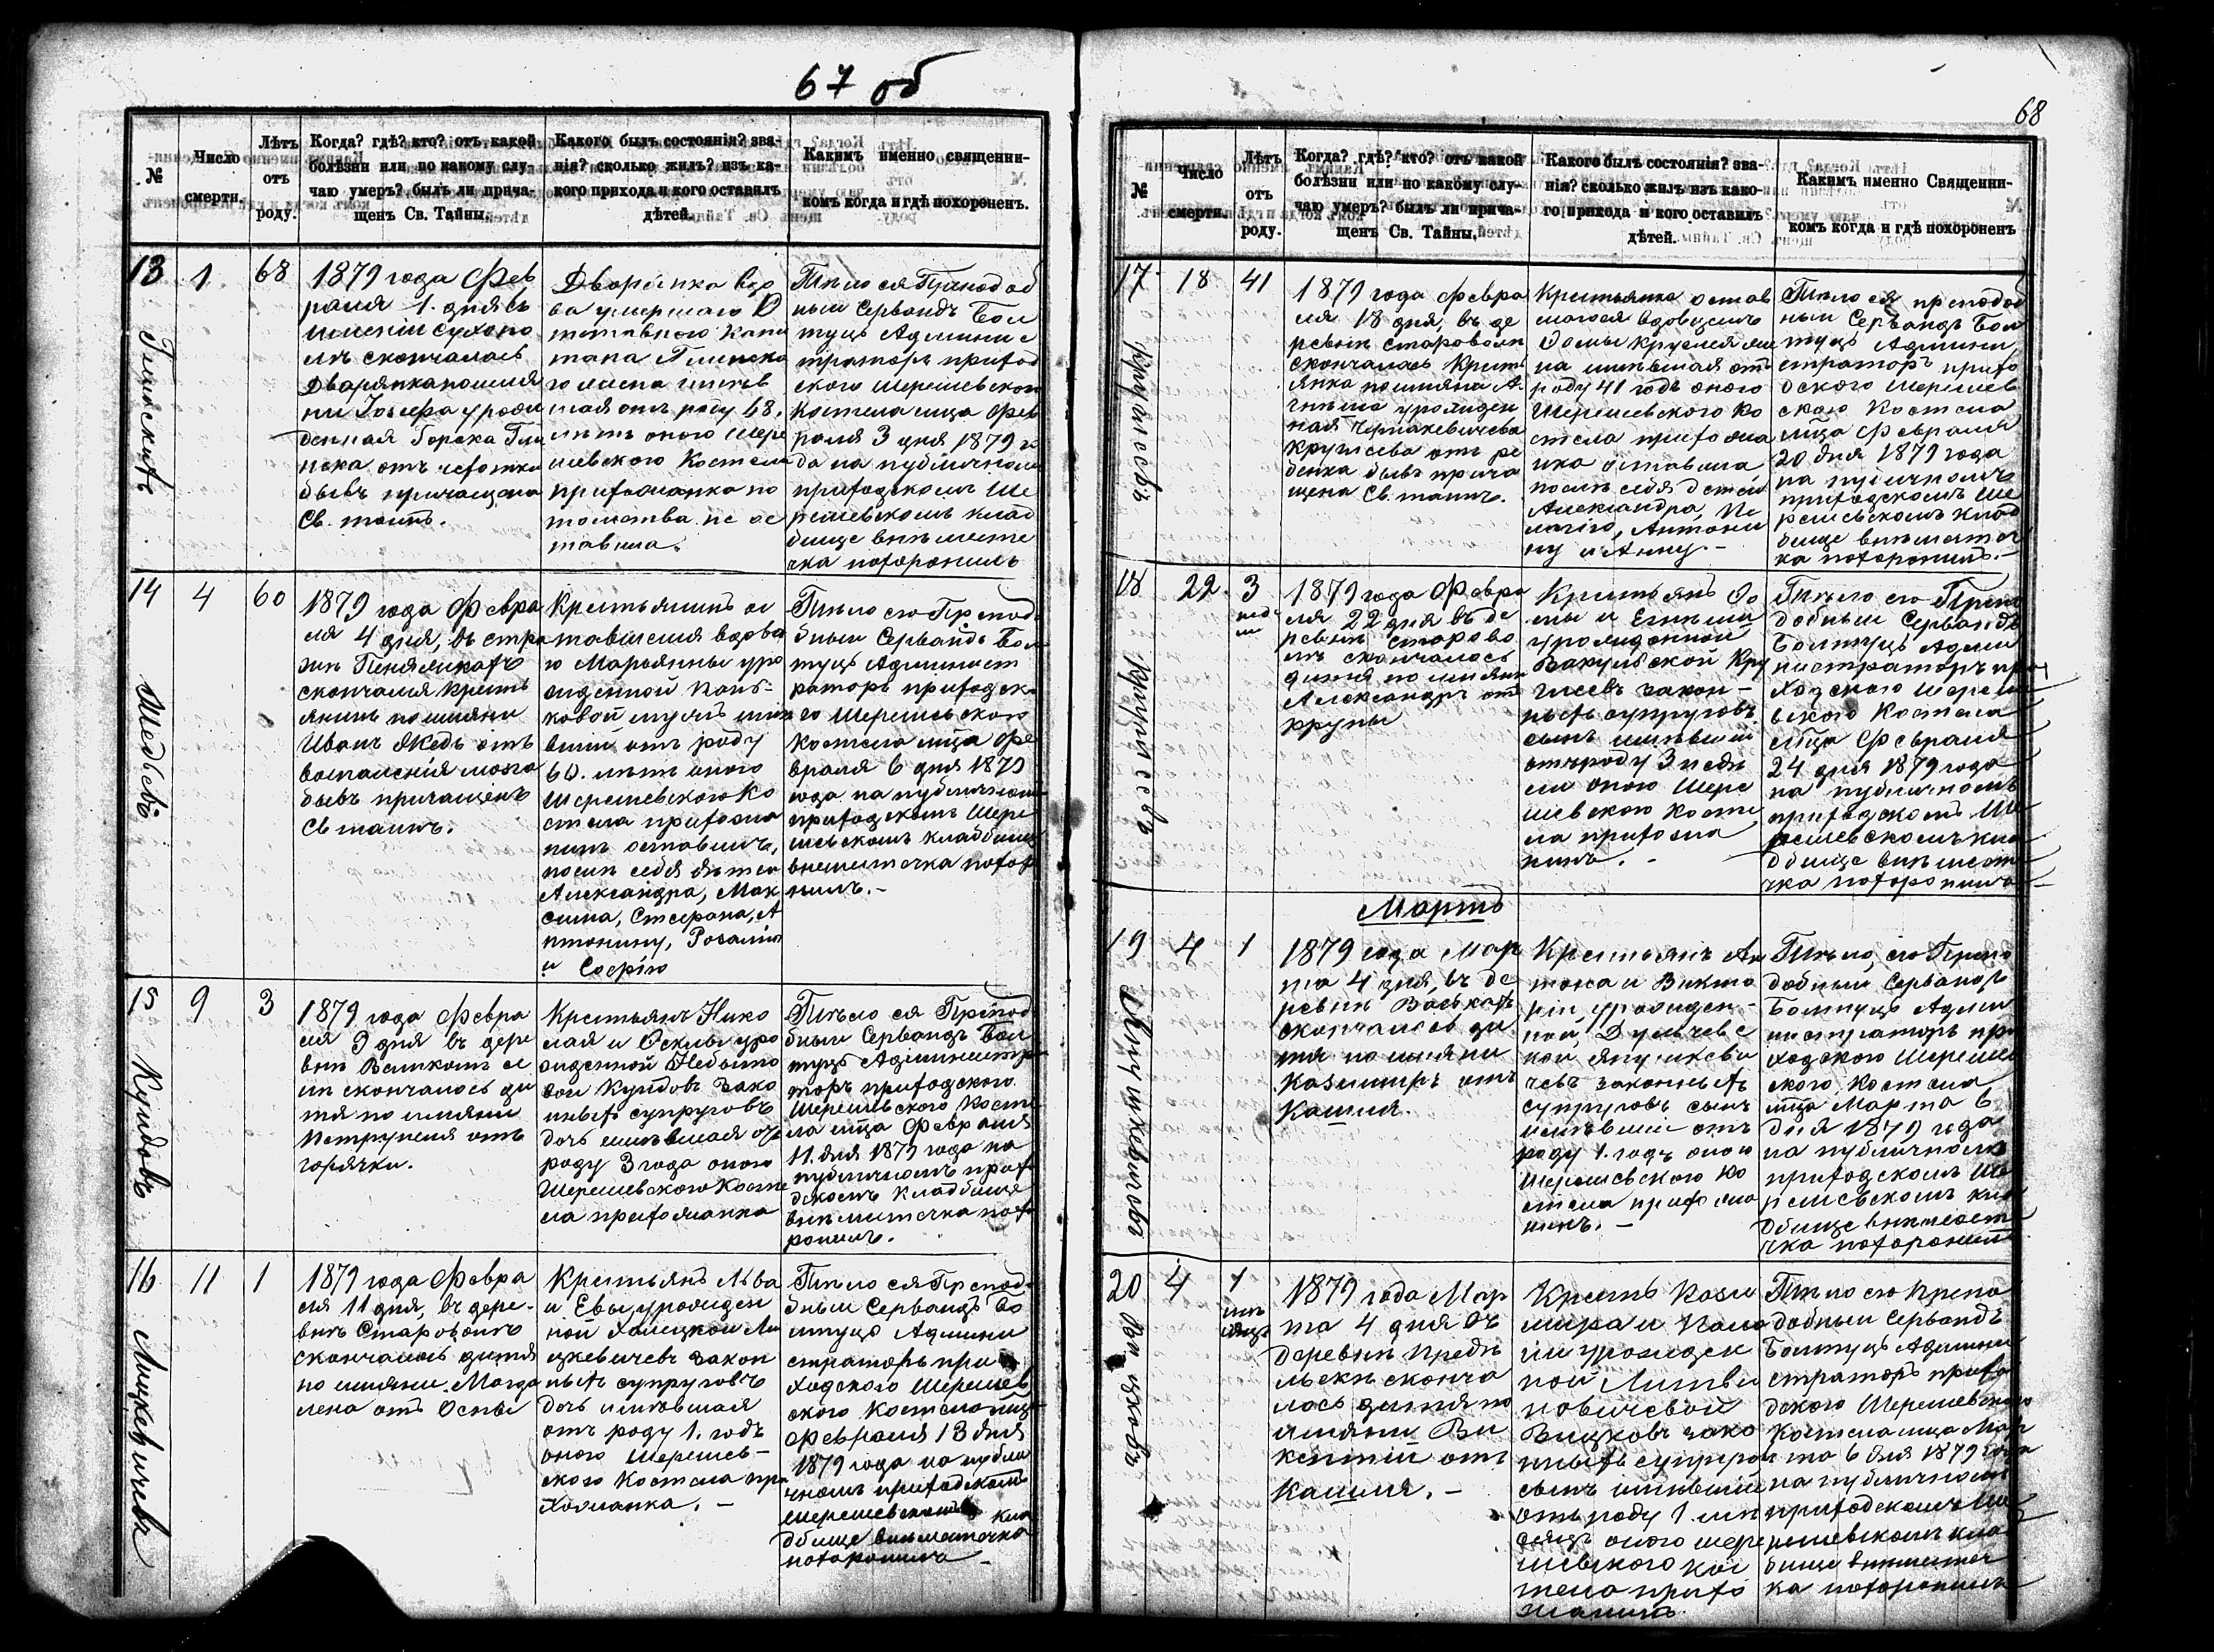 67 об
№
Число
смерти.
Лѣтъ
отъ
роду.
Когда? гдѣ? кто? отъ какой
болѣзни или по какому слу-
чаю умеръ? былъ ли прича-
щенъ Св. Тайны,
Какого былъ состоянія? зва-
нія? сколько жилъ? изъ ка-
кого прихода и кого оставилъ
дѣтей.
Какимъ именно священни-
комъ когда и гдѣ похороненъ.
13
1
68
1879 года Фев
раля 1. дня въ
имѣніи Сухопо
лѣ скончалась
Дворянка по имя
ни Іозефа урож
денная
отъ чехотки
бывъ причащена
Св. таинъ.
Дворянка вдо
ва умершаго О
тставного Капи
тана Глинска
го имѣ
шая отъ роду 68.
лѣтъ оного Шере
шевского Костела
прихожанка по
томства не ос
тавила.
Тѣло ея Преподоб
ный Сервандъ Бол
туць Админис
траторъ приход
ского Шерешевского
Костела мца Фев
раля 3 дня 1879 го
да на публичномъ
приходскомъ Ше
решевскомъ клад
бище внѣ месте
чка похоронилъ
14
4
60
1879 года Февра
ля 4 дня, въ стра
жѣ
скончался Кресть
янинъ по имяни
Иванъ отъ
воспаленія мозга
бывъ причащенъ
Св таинъ.
Крестьянинъ ос
тавившій вдово
ю Марьянны уро
жденной
ковой мужъ имѣ
вшій отъ роду
60. лѣтъ оного
Шерешевского Ко
стела прихожа
нинъ оставилъ,
послѣ себя дѣтей
Александра, Мак
сима, Стефана, А
нтонину, Розалію
и Софію
Тѣло его Препод
бный Сервандъ Бол
туць Админист
раторъ приходск
го Шерешевского
Костела мца Фе
враля 6 дня 1879
года на публичномъ
приходскомъ Шере
шевскомъ кладбищѣ
внеместечка похоро
нилъ.-
15
9
3
Куидовъ
1879 года Февра
ля 9 дня въ дере
внѣ Великомъ се
лѣ скончалось ди
тя по имяни
Петрунеля отъ
горячки.
Крестьянъ Нико
лая и уро
жденной
вой Куидовъ зако
нныхъ супруговъ
дочь имѣвшая отъ
роду 3 года оного
Шерешевского Косте
ла прихожанка
Тѣло ея Препод
бный Сервандъ Бол
туць Администра
торъ приходского
Шерешевского Косте
ла мца Февраля
11. дня 1879 года на
публичномъ прихо
дскомъ Кладбище
внѣ местечка похо
ронилъ.
16
11
1
Лицкевичевъ
1879 года Февра
ля 11 дня, въ дере-
внѣ Староволѣ
скончалось дитя
по имяни Магда
лена отъ Оспы
Крестьянъ Льва
и Евы, урожден
ной Холецкой Ли
цкевичевъ закон
ныхъ супруговъ
дочь имѣвшая
отъ роду 1. годъ
оного Шерешев-
ского Костела при
хожанка. -
Тѣло ея Препод
бный Сервандъ Бо
лтуць Админи
страторъ при
ходского Шерешев
ского Костела мца
Февраля 13 дня
1879 года на публи
чномъ приходскомъ
Шерешевскомъ кла
дбище внѣместечка
похоронилъ -
68
№
Число
смерти.
Лѣтъ
отъ
роду.
Когда? гдѣ? кто? отъ какой
болѣзни или по какому слу-
чаю умеръ? былъ ли прича-
щенъ Св. Тайны,
Какого былъ состоянія? зва-
нія? сколько жилъ изъ како-
го прихода и кого оставилъ
дѣтей.
Какимъ именно Священни-
комъ когда и гдѣ похороненъ
17
18
41
1879 года Февра
ля 18 дня, въ де
ревнѣ Староволѣ
скончалась Кресть
янка по имяни А
гнѣша урожден
ная
отъ ре
бенка бывъ прича
щена Св. таинъ.
Крестьянка остав
шагося вдовцемъ
Фомы же
на имѣвшая отъ
роду 41 годъ оного
Шерешевского Ко
стела прихожа
нка оставила
послѣ себя детей
Александра, Пе
лагію, Антони
ну и Анну.-
Тѣло ея преподоб
ный Сервандъ Бол
туць Админи
страторъ прихо
дского Шерешев
ского Костела
мца Февраля
20 дня 1879 года
на публичномъ
приходскомъ Ше
решевскомъ клад
бище внѣместеч
ка похоронилъ.-
18
22
3
нед
ли
1879 года Февра
ля 22 дня въ де
ревнѣ Старово
лѣ скончалось
дитя по имяни
Александръ отъ
крупы
Крестьянъ Фо
мы и Агнѣшы
урожденной
закон-
ныхъ супруговъ
сынъ имѣвшій
отъ роду 3 недѣ
ли оного Шере
шевского Косте
ла прихожа
нинъ. -
Тѣло его Препо
добный Сервандъ
Болтуць Адми
нистраторъ при
ходского Шереше
вского Костела
мца Февраля
24 дня 1879 года
на публичномъ
приходскомъ Ше
решевскомъ кла
дбище внѣместе
чка похоронилъ
Мартъ
19
4
1
Янушкевичовъ
1879 года Мар
та 4 дня, въ де
ревнѣ Васьках
скончалось ди
тя по имяни
Казимиръ отъ
Кашля.
Крестьянъ Ан
тона и Викто
ріи урожден-
ной
кой Янушкеви
чевъ законныхъ
супруговъ сынъ
имѣвшій отъ
роду 1. годъ оного
Шерешевского Ко
стела прихожа
нинъ. -
Тѣло, его Препо
добный Сервандъ
Болтуць Адми
нистраторъ при
ходского Шерешев
ского Костела
мца Марта 6
дня 1879 года
на публичномъ
приходскомъ Ше
решевскомъ кла
дбище внѣместе
чка похоронилъ
20
4
1
мѣ
сяцъ
1879 года Мар
та 4 дня въ
деревнѣ
сконча
лось дитя по
имяни Ви
кентій отъ
Кашля. -
Крестъ Кази
мира и
урожден
ной Литви
новичевой
зако
нныхъ супругов
сынъ имѣвшій
отъ роду 1. мѣ
сяцъ оного Шере
шевского Кос
тела прихо
жанинъ.
Тѣло его Препо
добный Сервандъ
Болтуць Админи
страторъ прихо
дского Шерешевского
Костела мца Мар
та 6 дня 1879 года
на публичномъ
приходскомъ Ше
решевскомъ кла
бище внѣместеч
ка похоронилъ